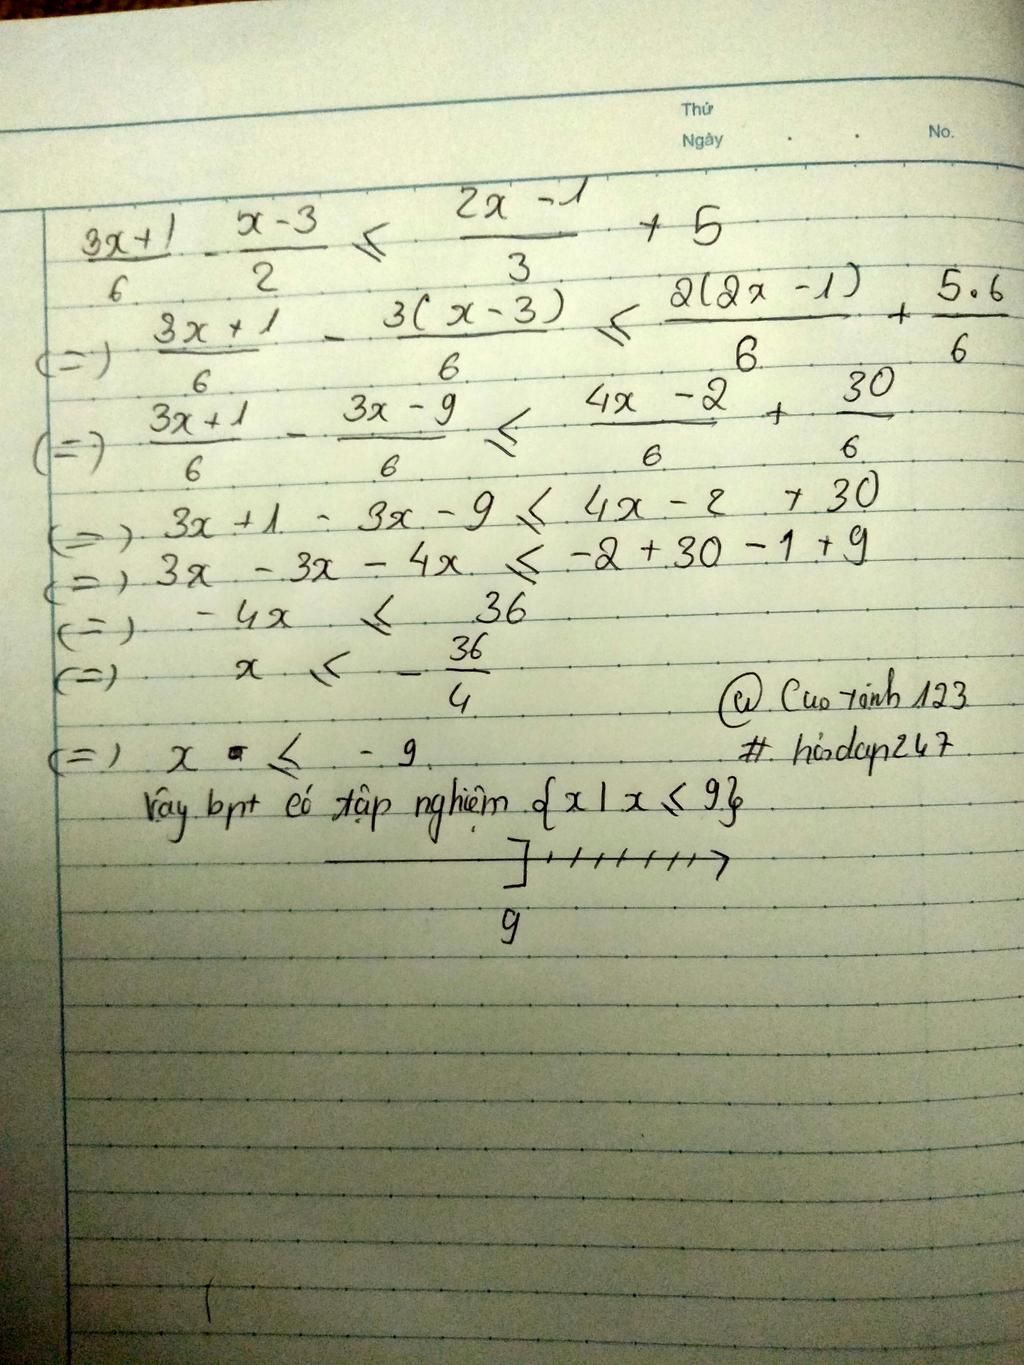 Thứ
Ngày . . No.
3x+1/6 - x-3/2 ≤ 2x-1/3 + 5
(=) 3x+1/6 - 3(x-3)/6 ≤ 2(2x-1)/6 + 5.6/6
(=) 3x+1/6 - 3x-9/6 ≤ 4x-2/6 + 30/6
(=) 3x+1 - 3x-9 ≤ 4x-2 + 30
(=) 3x - 3x - 4x ≤ -2+30-1+9
(=) -4x ≤ 36
(=) x ≤ -36/4
(=) x ≤ -9
@ 123
# hoidap247
Vậy bpt có tập nghiệm {x | x ≤ 9}
9